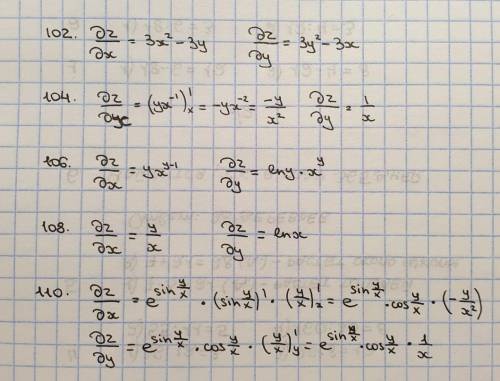 102. ∂z/∂x = 3x² - 3y ∂z/∂y = 3y² - 3x
104. ∂z/∂x = (yx⁻¹)'ₓ = -yx⁻² = -y/x² ∂z/∂y = 1/x
106. ∂z/∂x = yx^(y-1) ∂z/∂y = ln y · x^y
108. ∂z/∂x = y/x ∂z/∂y = ln x
110. ∂z/∂x = e^(sin y/x) · (sin y/x)' · (y/x)'ₓ = e^(sin y/x) · cos y/x · (-y/x²)
∂z/∂y = e^(sin y/x) · cos y/x · (y/x)'ᵧ = e^(sin y/x) · cos y/x · 1/x